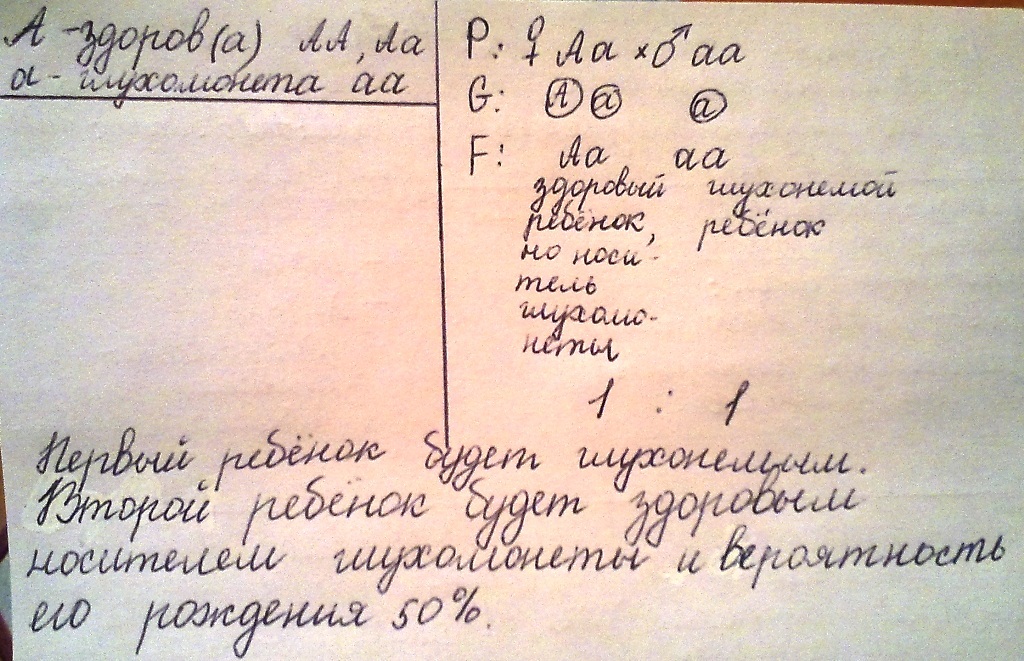 А - здоров(а) АА, Аа
а - глухомонета аа
P: ♀ Аа × ♂ аа
G: А а а
F: Аа аа
здоровый глухонемой
ребёнок, ребёнок
но носи-
тель
глухомо-
неты
1 : 1
Первый ребёнок будет глухонемым.
Второй ребёнок будет здоровым
носителем глухомонеты и вероятность
его рождения 50%.